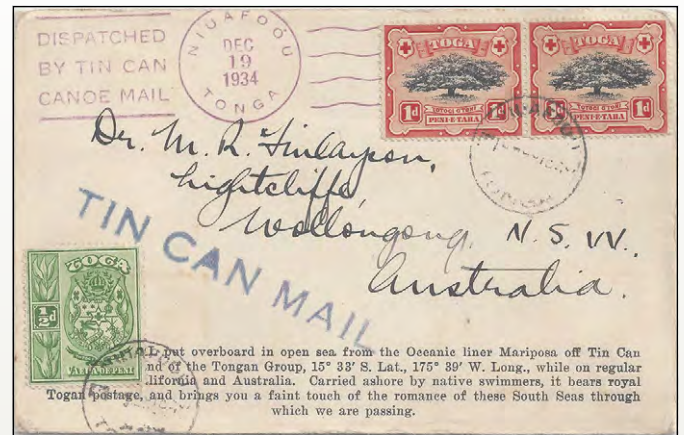 DISPATCHED
BY TIN CAN
CANOE MAIL
NIUAFOOU
DEC
19
1934
TONGA
TOGA
1d 1d
PENI-E-TAHA
TOGA
1d 1d
PENI-E-TAHA
Dr. M. R. Finlayson,
Lightcliffe
Wollongong, N. S. W.,
Australia.
TIN CAN MAIL
TOGA
½d
put overboard in open sea from the Oceanic liner Mariposa off Tin Can
nd of the Tongan Group, 15° 33' S. Lat., 175° 39' W. Long., while on regular
lifornia and Australia. Carried ashore by native swimmers, it bears royal
Togan postage, and brings you a faint touch of the romance of these South Seas through
which we are passing.